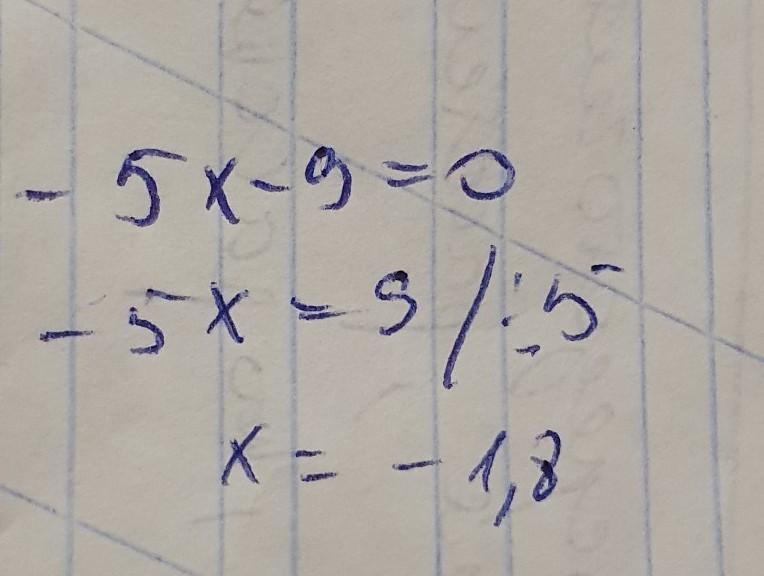 - 5x - 9 = 0
- 5x = 9 / : 5
x = - 1,8